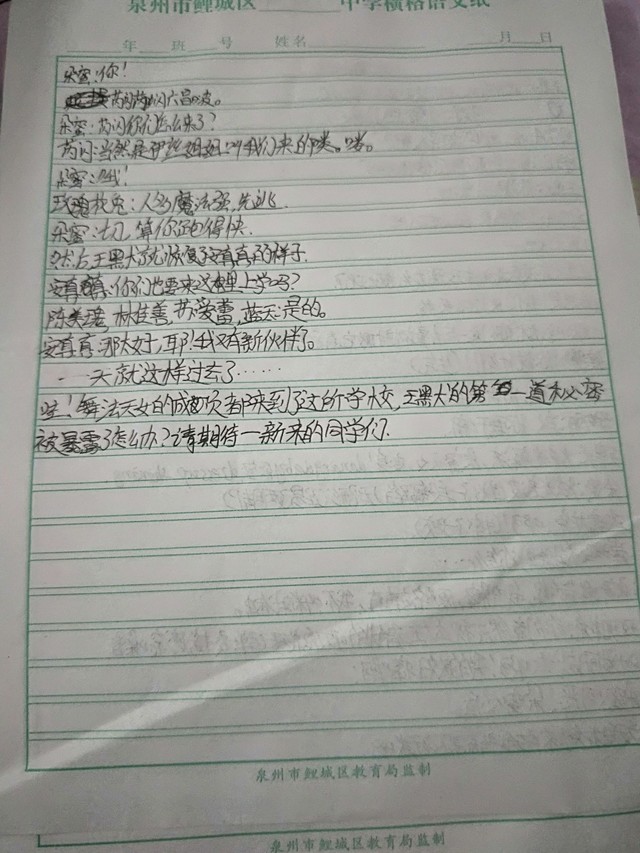 泉州市鲤城区 中学横格语文纸
年 班 号 姓名 月 日
朵蜜:你!
芮闪
朵蜜:芮闪你们怎么来了?
芮闪:当然是伊丝姐姐叫我们来的喽。喽。
朵蜜:哦!
玫瑰枝兔:人多魔法强,先逃
朵蜜:切,算你跑得快.
然后王黑大就恢复了安真真的样子.
安真真:你们也要来这里上学吗?
陈美 林佳善,苏爱蕾,蓝天:是的。
安真真:那太好了,耶!我又有新伙伴了。
一天就这样过去了……
哇!舞法天女的成员都来到了这所学校,王黑大的第一道秘密
被暴露了怎么办?请期待一新来的同学们.
泉州市鲤城区教育局监制
泉州市鲤城区教育局监制